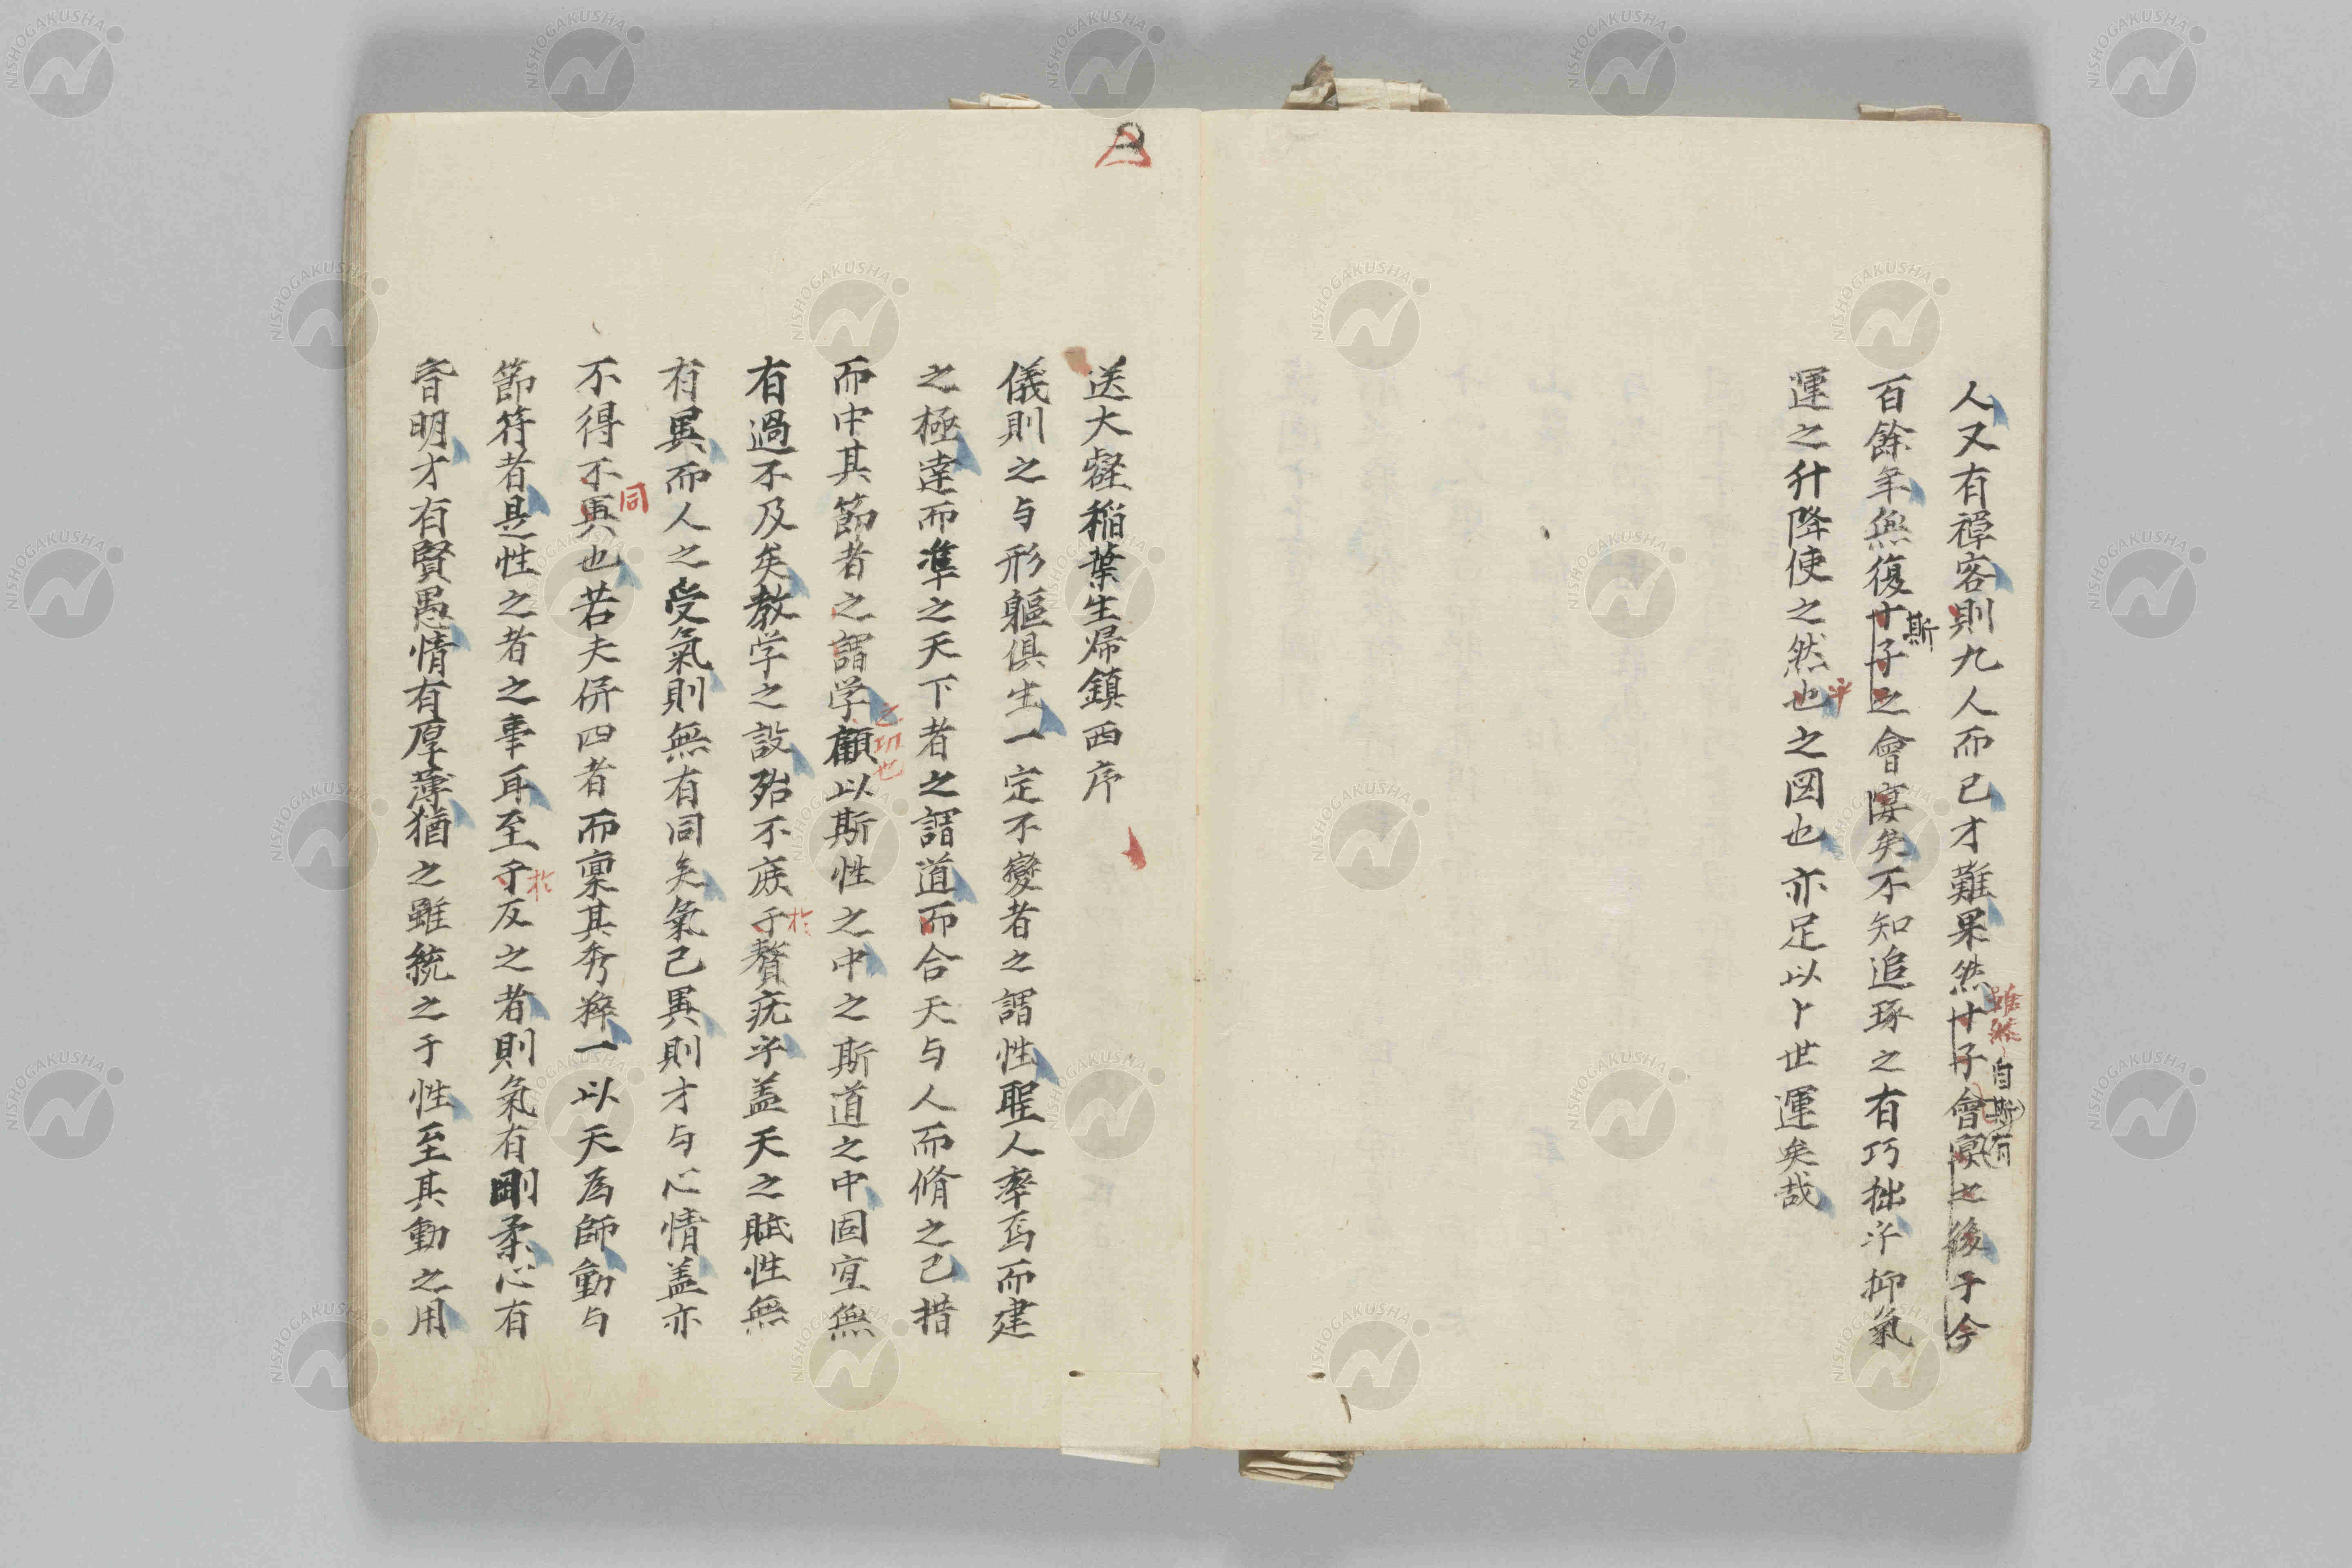 人又有禪客則九人而已才難果然十子會宴之後于今
雖然
自斯有
百餘年無復十子之會宴矣不知追琢之有巧拙乎抑氣
斯
運之升降使之然也之図也亦足以卜世運矣哉
乎
送大壑稲葉生帰鎮西序
儀則之与形軀俱生一定不變者之謂性聖人率焉而建
之極達而準之天下者之謂道而合天与人而脩之己措
而中其節者之謂学顧以斯性之中之斯道之中固宜無
之功也
有過不及矣教学之設殆不庶于贅疣乎盖天之賦性無
於
有異而人之受氣則無有同矣氣已異則才与心情盖亦
不得不異也若夫併四者而稟其秀粹一以天為師動与
同
節符者是性之者之事耳至于反之者則氣有剛柔心有
於
昏明才有賢愚情有厚薄猶之雖統之于性至其動之用
NISHOGAKUSHA